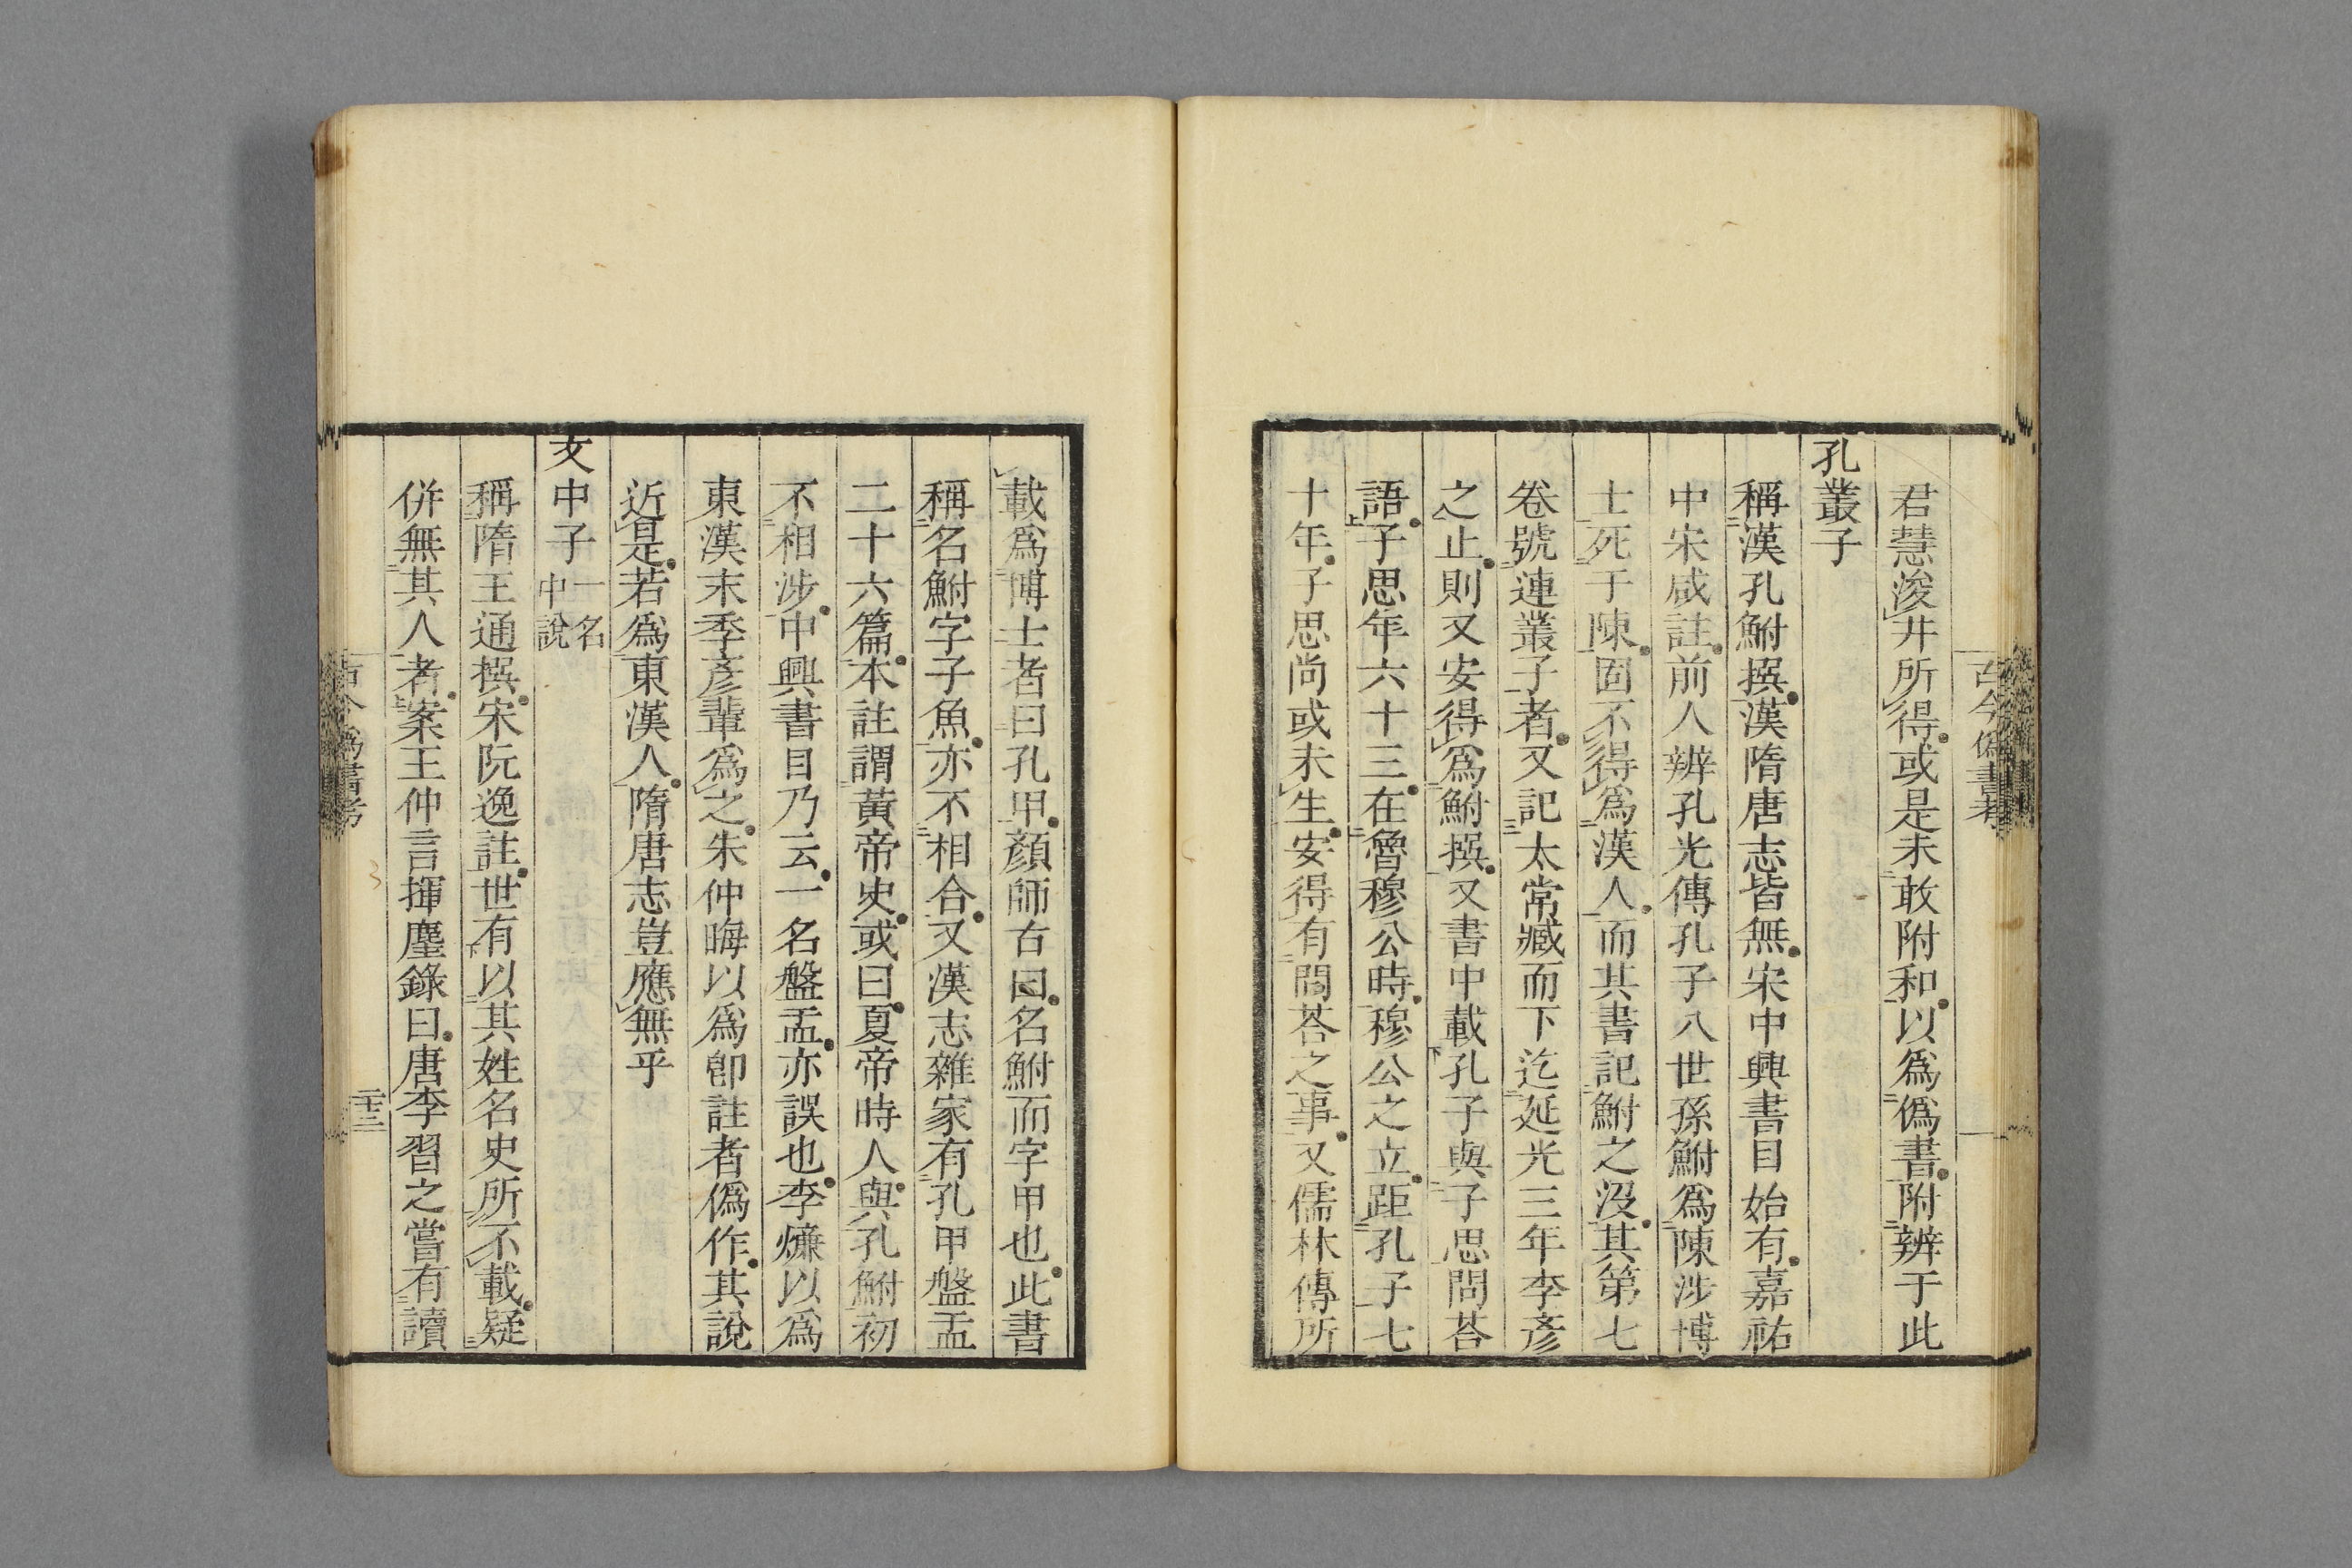 古今僞書考
君慧浚井所得或是未敢附和以爲僞書附辨于此
孔叢子
稱漢孔鮒撰漢隋唐志皆無宋中興書目始有嘉祐
中宋咸註前人辨孔光傳孔子八世孫鮒爲陳涉博
士死于陳固不得爲漢人而其書記鮒之沒其第七
卷號連叢子者又記太常臧而下迄延光三年李彥
之止則又安得爲鮒撰又書中載孔子與子思問荅
語子思年六十三在魯穆公時穆公之立距孔子七
十年子思尚或未生安得有問荅之事又儒林傳所
載爲博士者曰孔甲顏師古曰名鮒而字甲也此書
稱名鮒字子魚亦不相合又漢志雜家有孔甲盤盂
二十六篇本註謂黃帝史或曰夏帝時人與孔鮒初
不相涉中興書目乃云一名盤盂亦誤也李燫以爲
東漢末季彥輩爲之朱仲晦以爲卽註者僞作其說
近是若爲東漢人隋唐志豈應無乎
文中子一名中說
稱隋王通撰宋阮逸註世有以其姓名史所不載疑
併無其人者案王仲言揮麈錄曰唐李習之嘗有讀
古今僞書考
二十三